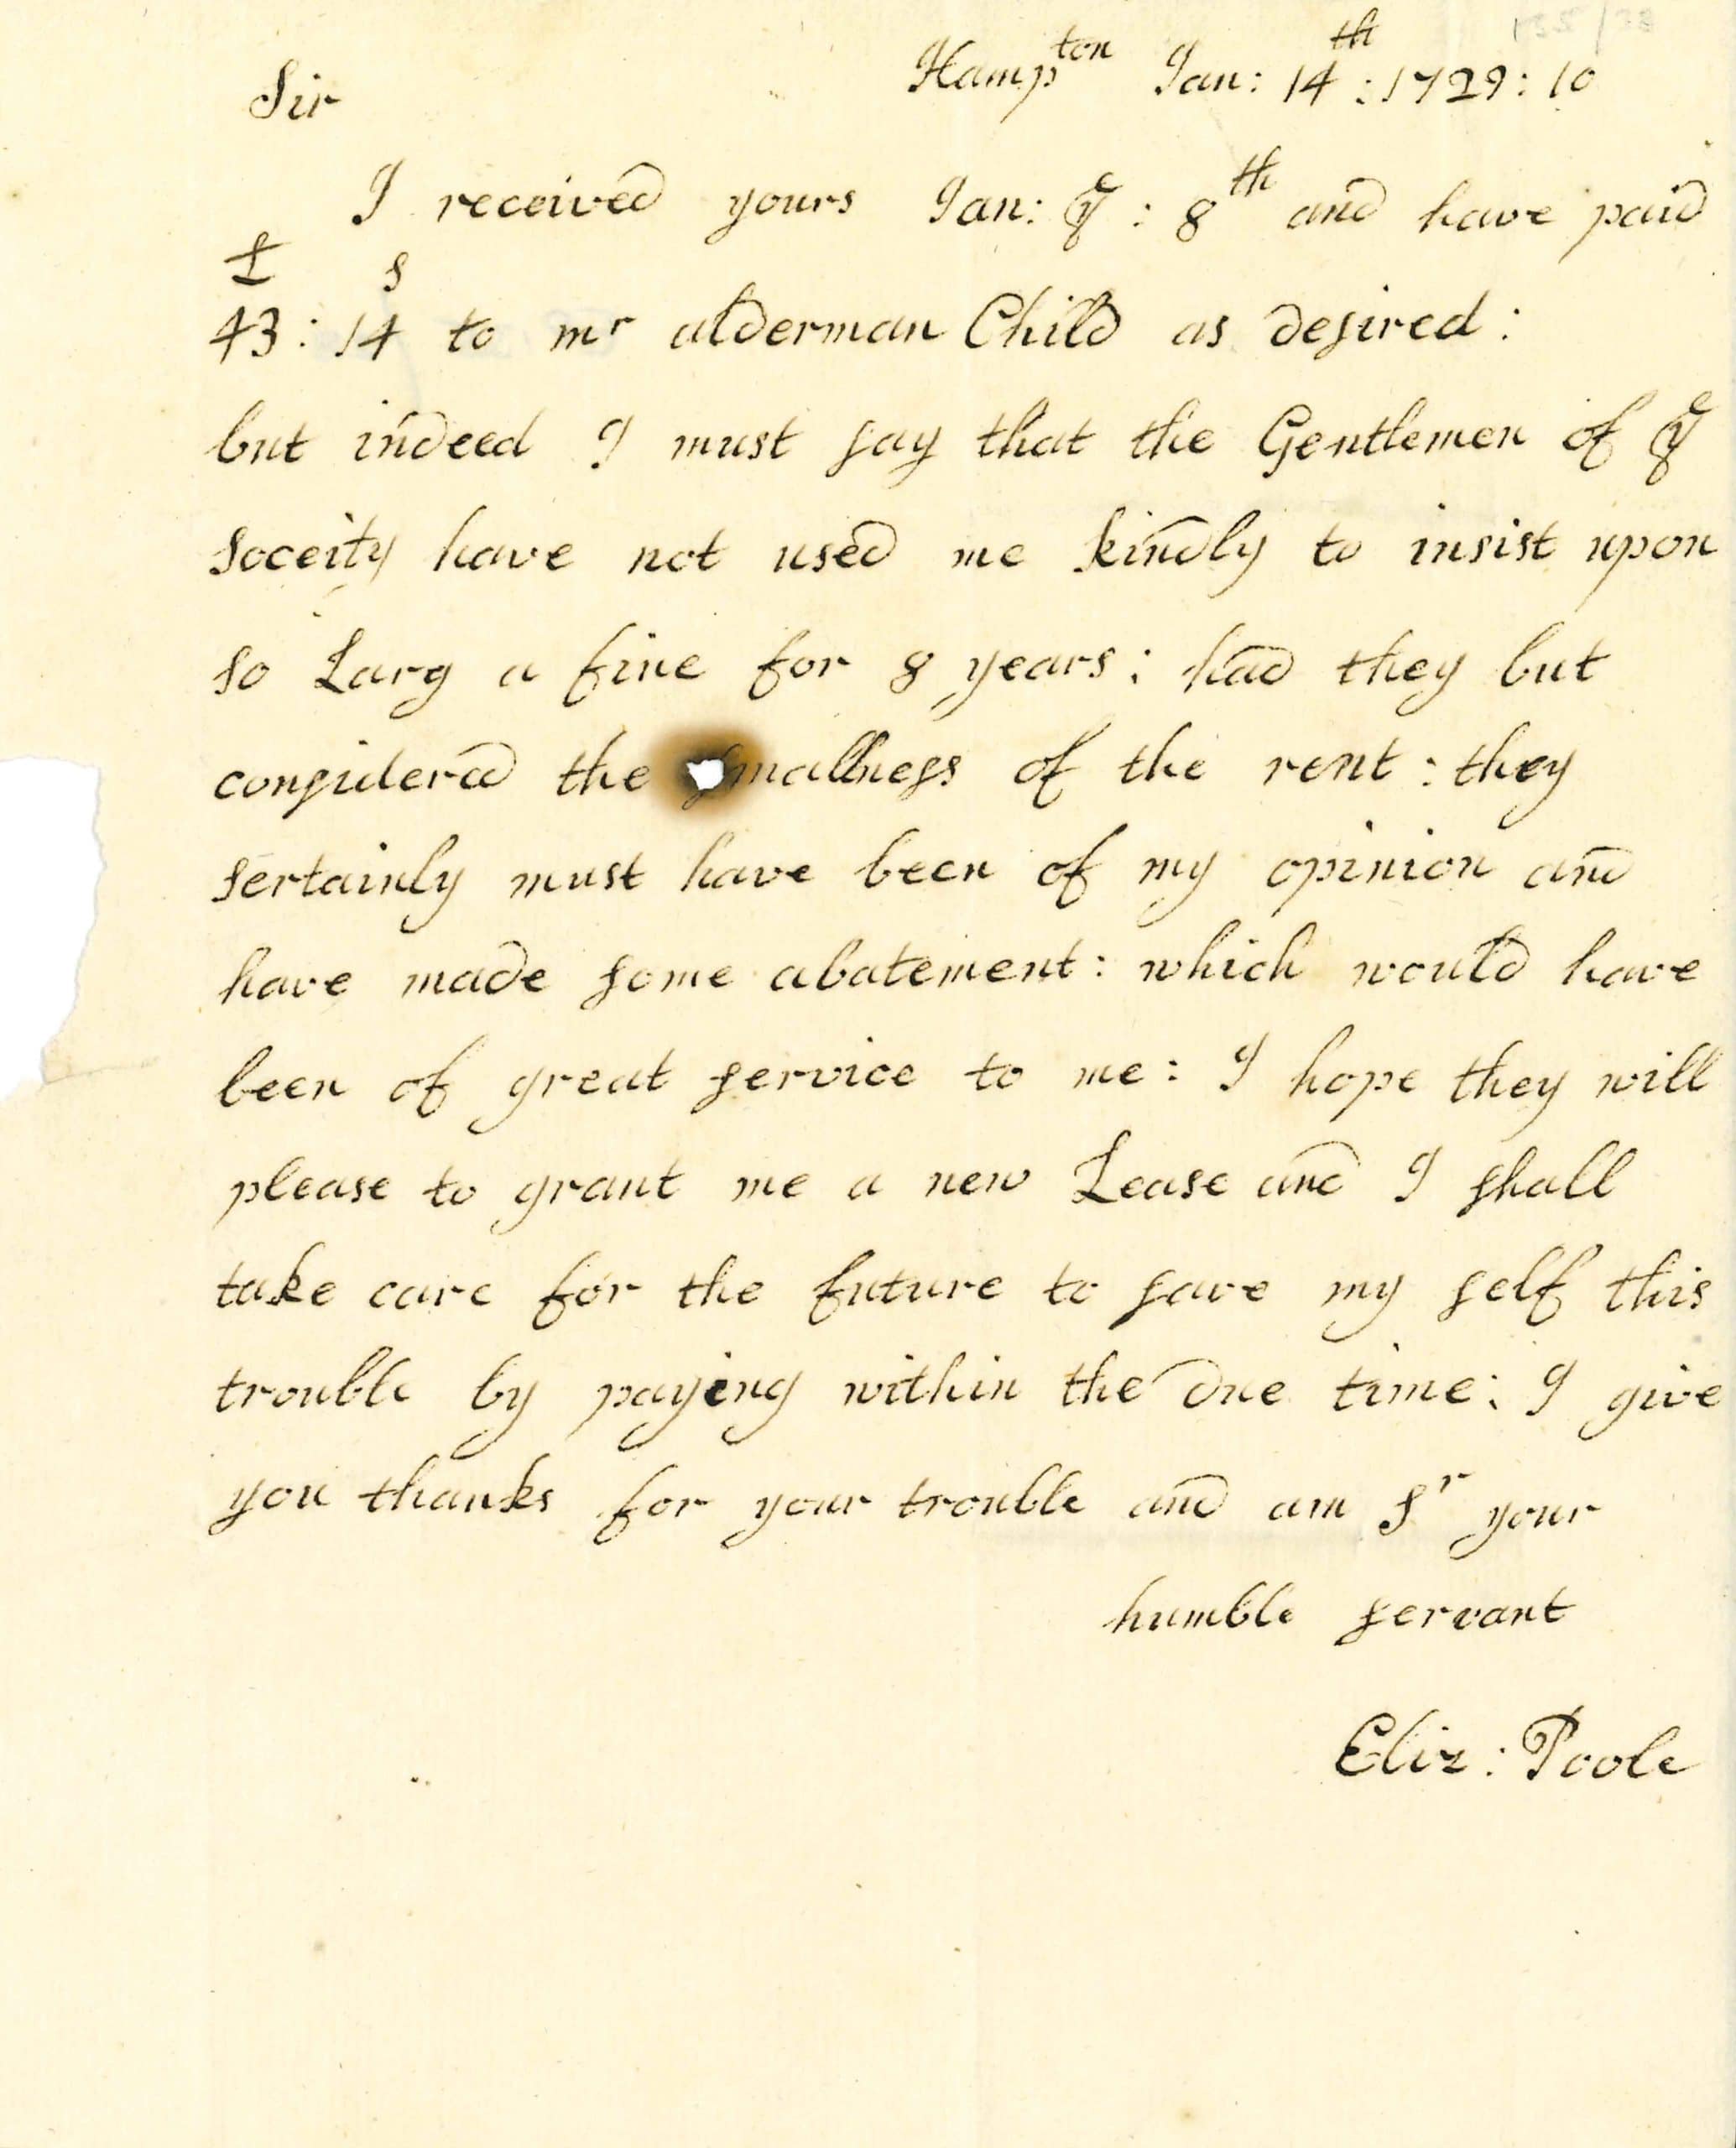 Hampton Jan: 14th : 1729 : 10
Sir
I received yours Jan: ye : 8th and have paid
£ s
43 : 14 to mr alderman Child as desired :
but indeed I must say that the Gentlemen of ye
soceity have not used me kindly to insist upon
so Larg a fine for 8 years : had they but
considerd the smallness of the rent : they
sertainly must have been of my opinion and
have made some abatement : which would have
been of great service to me : I hope they will
please to grant me a new Lease and I shall
take care for the future to save my self this
trouble by paying within the due time : I give
you thanks for your trouble and am Sr your
humble servant
Eliz : Poole